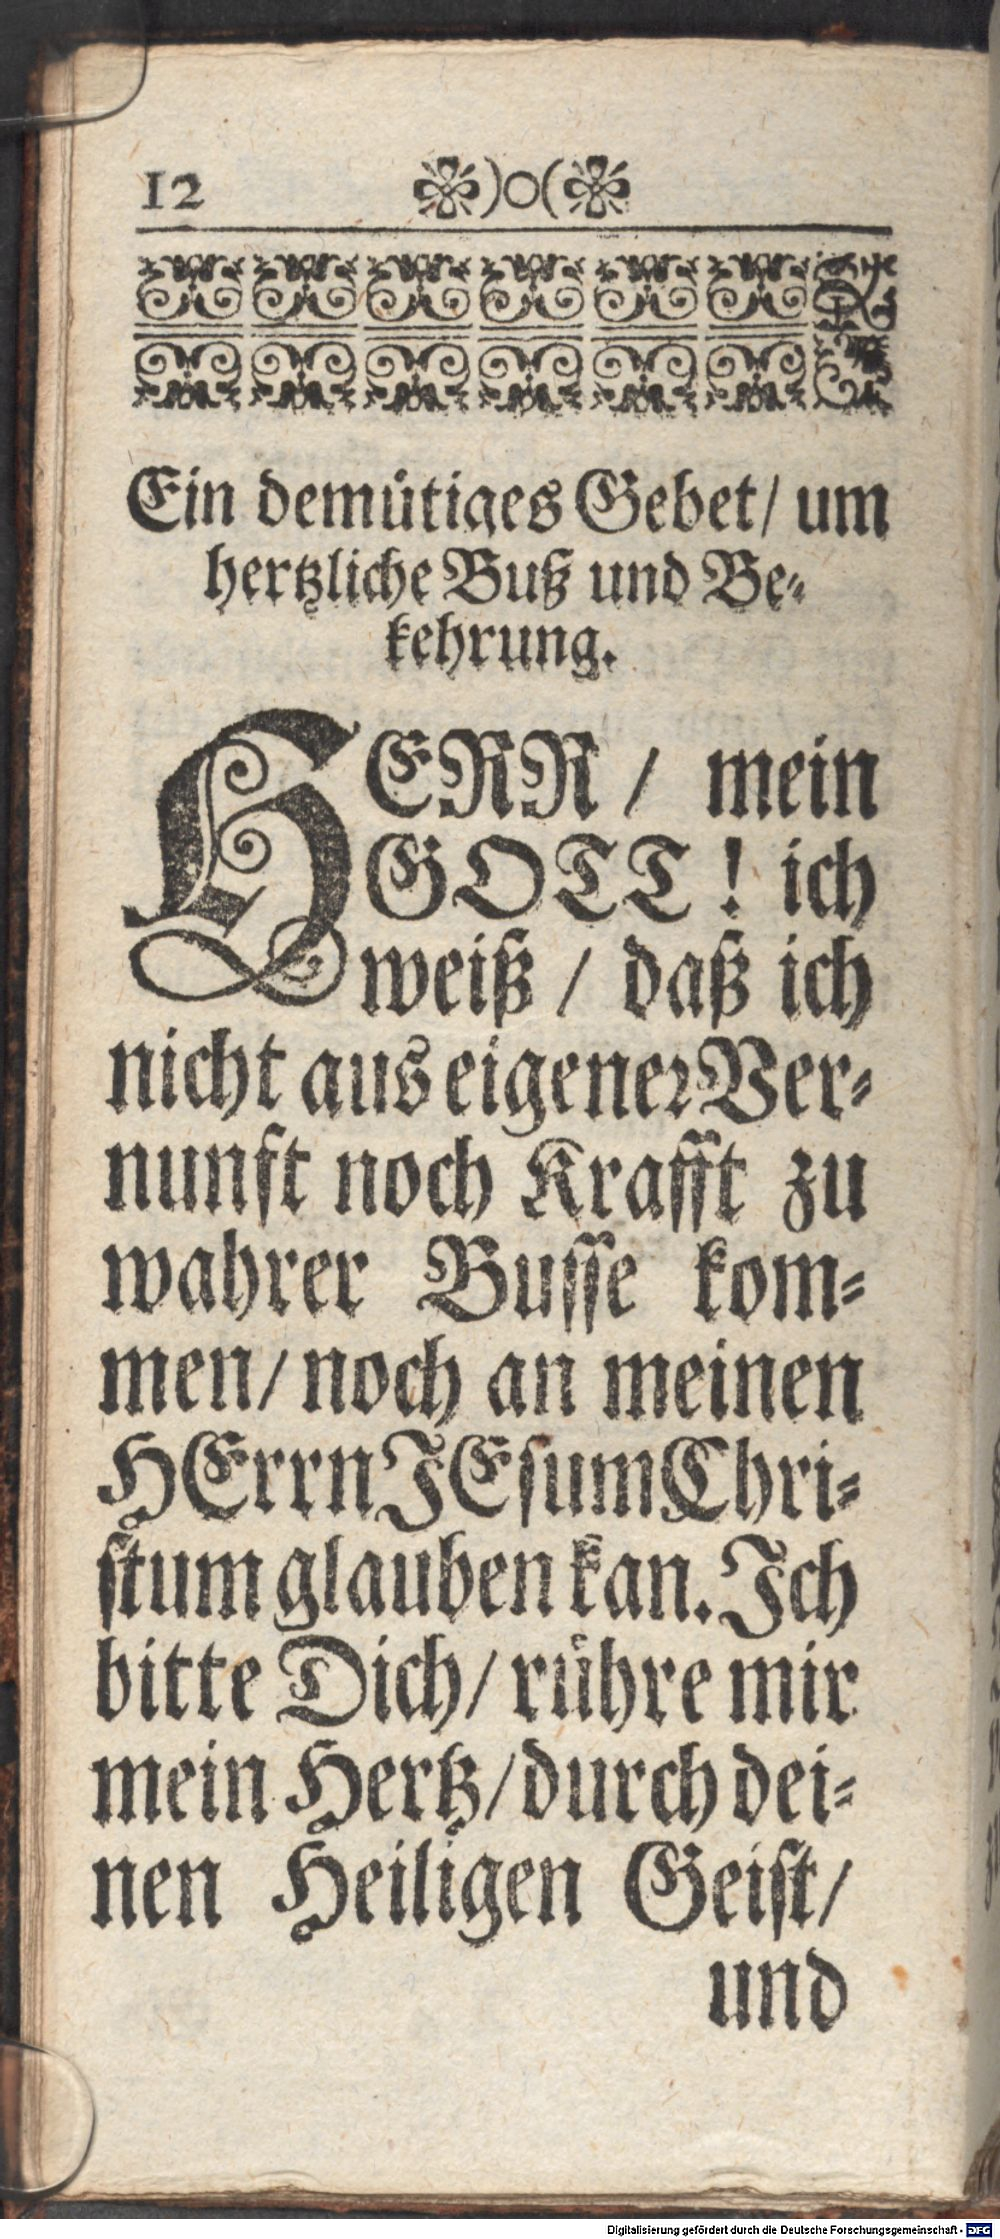 12 )o(
Ein demütiges Gebet/ um
hertzliche Buß und Be-
kehrung.
HERR / mein
GOTT! ich
weiß / daß ich
nicht aus eigener Ver-
nunft noch Krafft zu
wahrer Busse kom-
men/ noch an meinen
HErrn JEsum Chri-
stum glauben kan. Ich
bitte Dich/ rühre mir
mein Hertz/ durch dei-
nen Heiligen Geist/
und
Digitalisierung gefördert durch die Deutsche Forschungsgemeinschaft - DFG